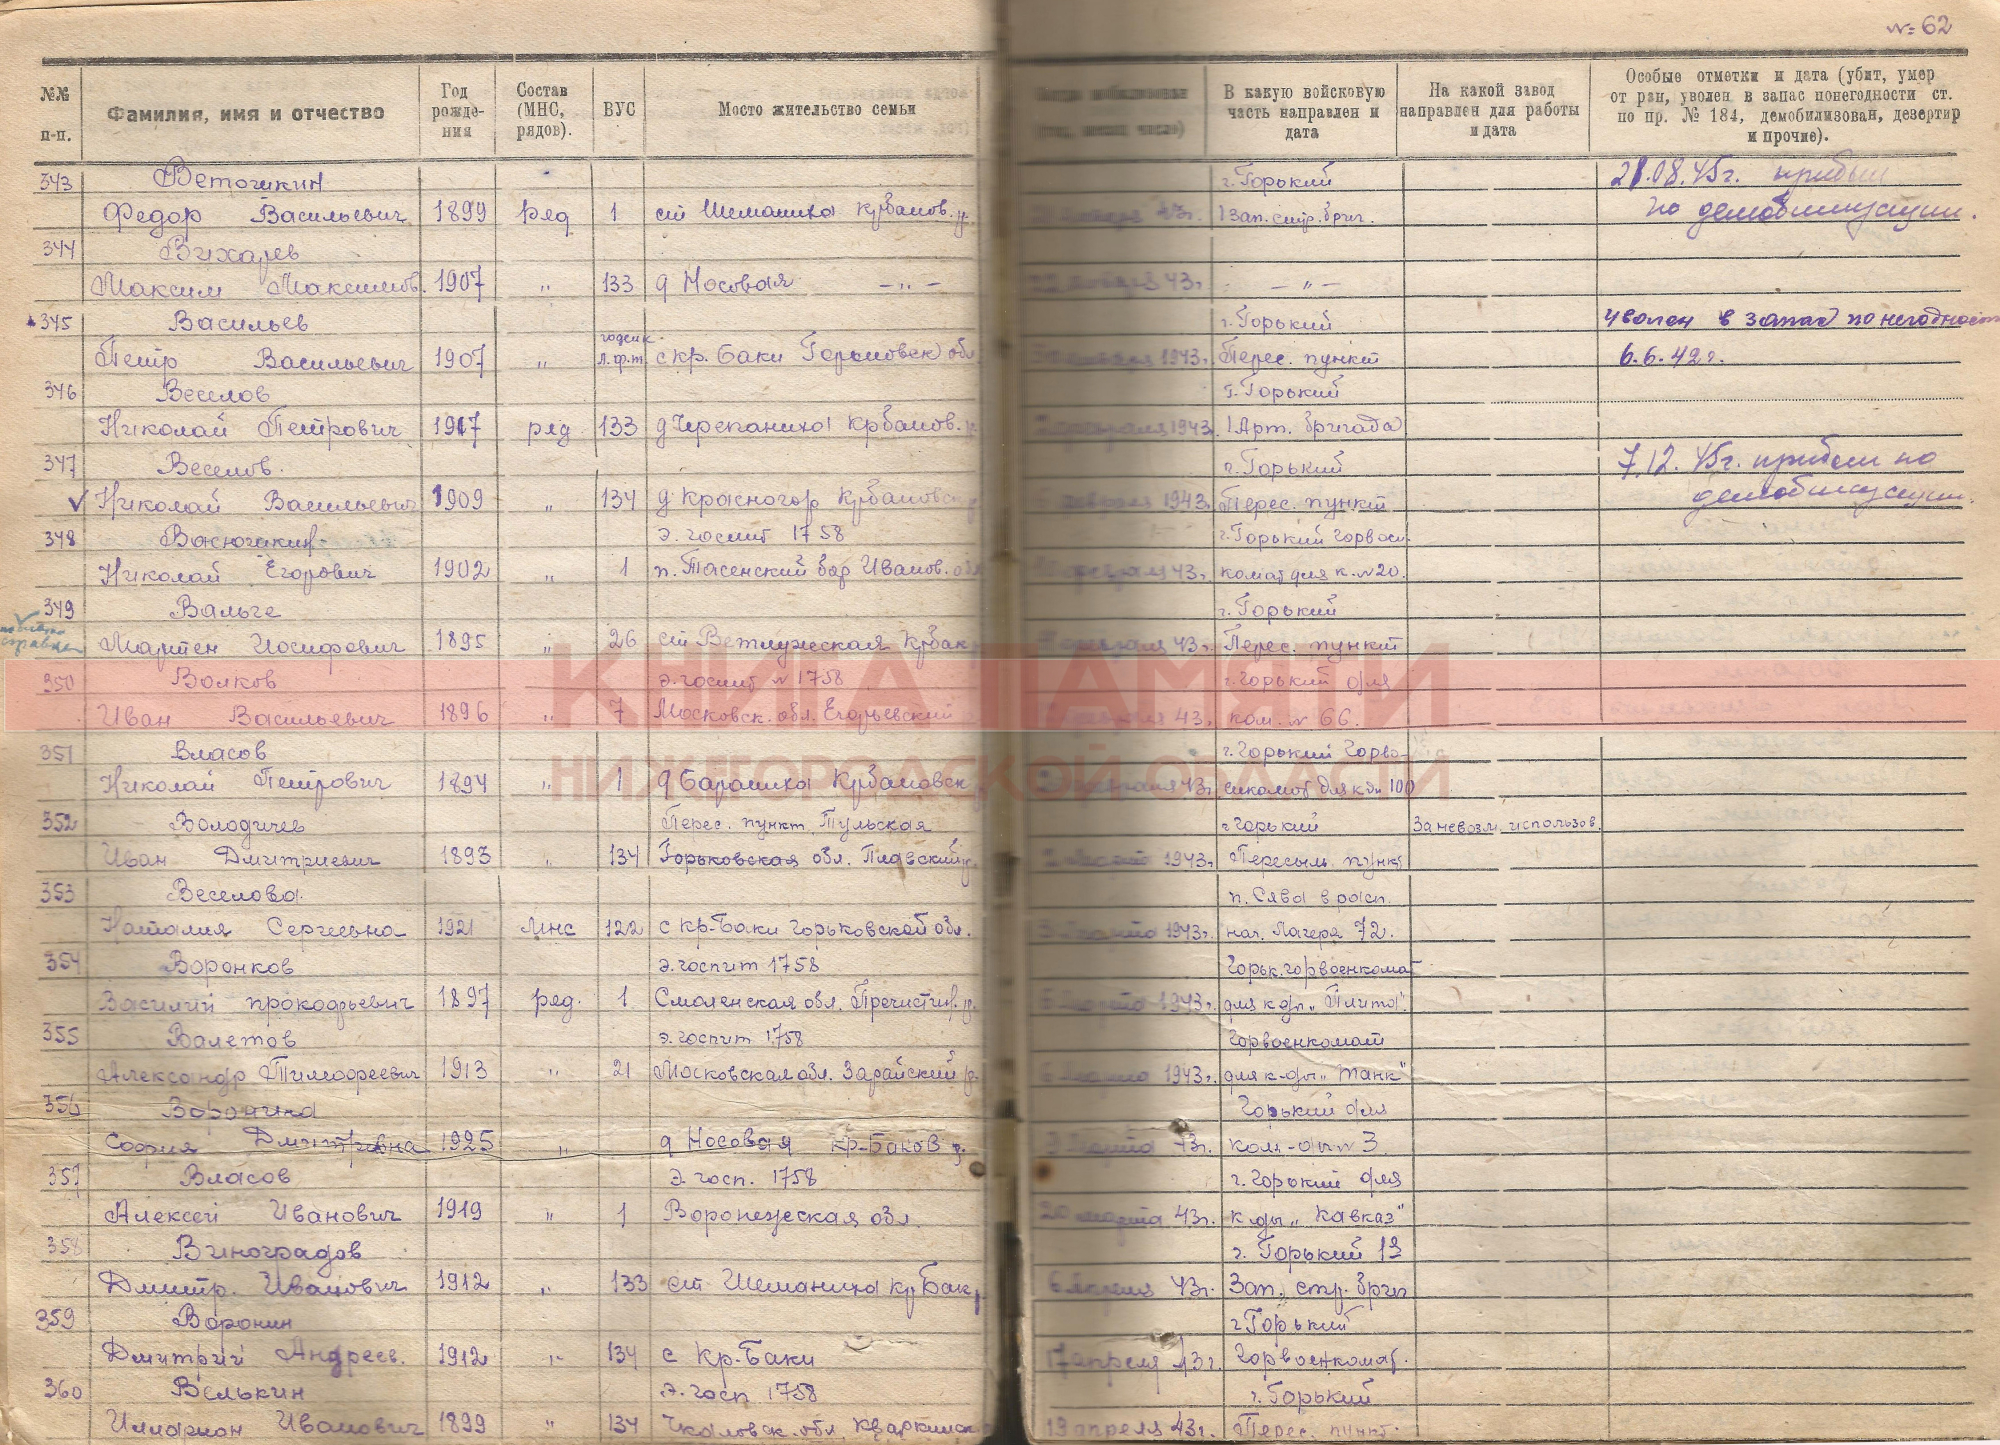 № 62
№№ п-п.
Фамилия, имя и отчество
Год рожде- ния
Состав (МНС, рядов).
ВУС
Мосто жительство семьи
В какую войсковую часть направлен и дата
На какой завод направлен для работы и дата
Особые отметки и дата (убит, умер от ран, уволен в запас понегодности ст. по пр. № 184, демобилизован, дезертир и прочие).
343 Веточикин г. Горький 21.08.45г. прибыл
Федор Васильевич 1899 ряд 1 ст Шеманиха Крбаков. р. 43г. 1 Зап. стр. бриг. по демобилизации.
344 Вихарев
Максим Максимов. 1907 " 133 д Носовая – " – 43г. – " –
345 Васильев г. Горький уволен в запас по негодности
Петр Васильевич 1907 " годен к л.ф.т. с кр. Баки Горьковск обл 1943г. Перес. пункт 6.6.42г.
346 Веселов г. Горький
Николай Петрович 1917 ряд 133 д Черепаниха Крбаков. р. февраля 1943 1 Арт. бригада
347 Веселов. г. Горький 7.12.45г. прибыл по
Николай Васильевич 1909 " 134 д Красногор Крбаковск февраля 1943 Перес. пункт демобилизации.
348 Васючакин э. госпит 1758 г. Горький Горвоен
Николай Егорович 1902 " 1 п. Тасенский бор Иванов. обл февраля 43г. комат для к. №20.
349 Вальге г. Горький
справка Мартен Иосифович 1895 " 26 ст Ветлужская Крбак февраля 43г. Перес. пункт
350 Волков э. госпит № 1758 г. Горький для
Иван Васильевич 1896 " 7 Московск. обл. Егорьевский 43г. ком. № 66.
КНИГА ПАМЯТИ
351 Власов г. Горький Горво-
Николай Петрович 1894 " 1 д Барониха Крбаковск февраля 43г. енкомат для к-ды 100
НИЖЕГОРОДСКОЙ ОБЛАСТИ
352 Володичев Перес. пункт Тульская г Горький За невозм. использов.
Иван Дмитриевич 1893 " 134 Горьковская обл. Плавский р. марта 1943г. Пересыльн. пункт
353 Веселова п. Сява в расп.
Наталия Сергеевна 1921 Мнс 122 с кр-Баки Горьковской обл. марта 1943г. нач. Лагеря 72.
354 Воронков э. госпит 1758 Горьк. горвоенкомат
Василий прокофьевич 1897 ряд. 1 Смоленская обл. Пречистин. р. марта 1943г. для к-ды „Плита".
355 Валетов э. госпит 1758 Горвоенкомат
Александр Тимофеевич 1913 " 21 Московская обл. Зарайский р. марта 1943г. для к-ды „Танк"
356 Воронина Горький для
София Дмитриевна 1925 " д Носовая кр-Баков р. марта 43г. ком-ды № 3
357 Власов Э. госп. 1758 г. Горький для
Алексей Иванович 1919 " 1 Воронежская обл. 20 марта 43г. к-ды „Кавказ"
358 Виноградов г. Горький 13
Дмитр. Иванович 1912 " 133 ст Шеманиха кр Бак. р 6 апреля 43г. Зап. стр. бриг
359 Воронин г Горький
Дмитрий Андреев. 1912 " 134 с Кр-Баки 17 апреля 43г. Горвоенкомат.
360 Велькин э. госп 1758 г. Горький
Илларион Иванович 1899 " 134 Чкаловск. обл. Кваркинск 19 апреля 43г. Перес. пункт.